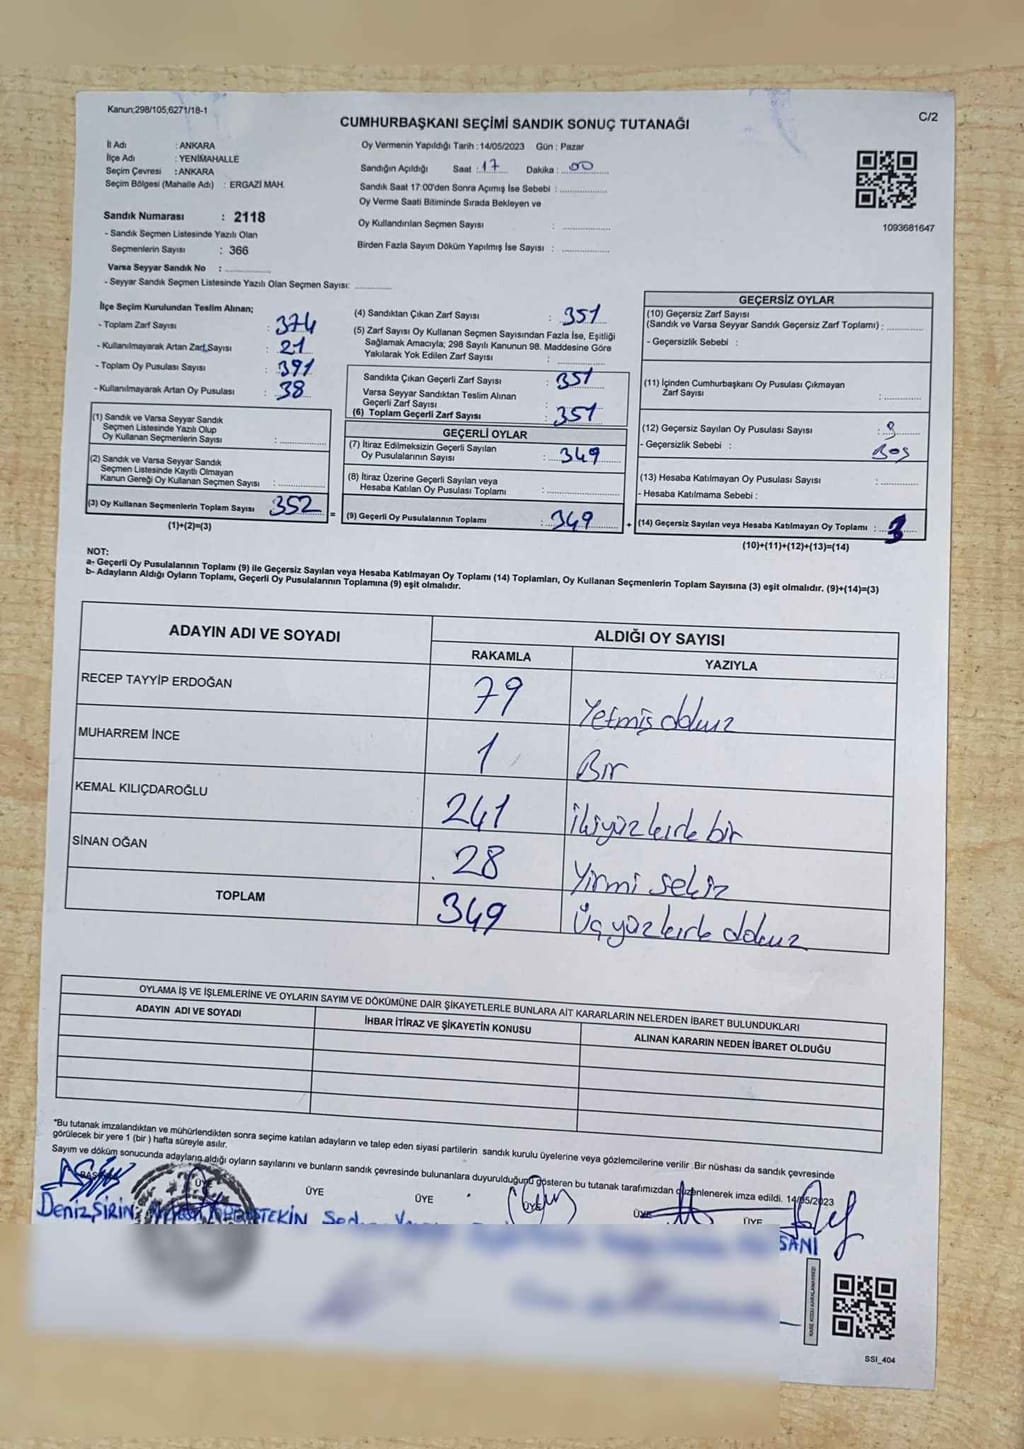 Kanun;298/105,6271/18-1
C/2
CUMHURBAŞKANI SEÇİMİ SANDIK SONUÇ TUTANAĞI
İl Adı : ANKARA
İlçe Adı : YENİMAHALLE
Seçim Çevresi : ANKARA
Seçim Bölgesi (Mahalle Adı) : ERGAZİ MAH.
Sandık Numarası : 2118
- Sandık Seçmen Listesinde Yazılı Olan
Seçmenlerin Sayısı : 366
Varsa Seyyar Sandık No :
- Seyyar Sandık Seçmen Listesinde Yazılı Olan Seçmen Sayısı:
Oy Vermenin Yapıldığı Tarih : 14/05/2023 Gün : Pazar
Sandığın Açıldığı Saat : 17 Dakika : 00
Sandık Saat 17:00'den Sonra Açımış İse Sebebi :
Oy Verme Saati Bitiminde Sırada Bekleyen ve
Oy Kullandırılan Seçmen Sayısı :
Birden Fazla Sayım Döküm Yapılmış İse Sayısı :
1093681647
İlçe Seçim Kurulundan Teslim Alınan;
- Toplam Zarf Sayısı : 374
- Kullanılmayarak Artan Zarf Sayısı : 21
- Toplam Oy Pusulası Sayısı : 391
- Kullanılmayarak Artan Oy Pusulası : 38
(1) Sandık ve Varsa Seyyar Sandık
Seçmen Listesinde Yazılı Olup
Oy Kullanan Seçmenlerin Sayısı :
(2) Sandık ve Varsa Seyyar Sandık
Seçmen Listesinde Kayıtlı Olmayan
Kanun Gereği Oy Kullanan Seçmen Sayısı :
(3) Oy Kullanan Seçmenlerin Toplam Sayısı 352 =
(1)+(2)=(3)
(4) Sandıktan Çıkan Zarf Sayısı : 351
(5) Zarf Sayısı Oy Kullanan Seçmen Sayısından Fazla İse, Eşitliği
Sağlamak Amacıyla; 298 Sayılı Kanunun 98. Maddesine Göre
Yakılarak Yok Edilen Zarf Sayısı :
Sandıkta Çıkan Geçerli Zarf Sayısı : 351
Varsa Seyyar Sandıktan Teslim Alınan
Geçerli Zarf Sayısı :
(6) Toplam Geçerli Zarf Sayısı : 351
GEÇERLİ OYLAR
(7) İtiraz Edilmeksizin Geçerli Sayılan
Oy Pusulalarının Sayısı : 349
(8) İtiraz Üzerine Geçerli Sayılan veya
Hesaba Katılan Oy Pusulası Toplamı :
(9) Geçerli Oy Pusulalarının Toplamı : 349 +
GEÇERSİZ OYLAR
(10) Geçersiz Zarf Sayısı
(Sandık ve Varsa Seyyar Sandık Geçersiz Zarf Toplamı) :
- Geçersizlik Sebebi :
(11) İçinden Cumhurbaşkanı Oy Pusulası Çıkmayan
Zarf Sayısı :
(12) Geçersiz Sayılan Oy Pusulası Sayısı :
- Geçersizlik Sebebi : Boş
(13) Hesaba Katılmayan Oy Pusulası Sayısı :
- Hesaba Katılmama Sebebi :
(14) Geçersiz Sayılan veya Hesaba Katılmayan Oy Toplamı : 3
(10)+(11)+(12)+(13)=(14)
NOT:
a- Geçerli Oy Pusulalarının Toplamı (9) ile Geçersiz Sayılan veya Hesaba Katılmayan Oy Toplamı (14) Toplamları, Oy Kullanan Seçmenlerin Toplam Sayısına (3) eşit olmalıdır. (9)+(14)=(3)
b- Adayların Aldığı Oyların Toplamı, Geçerli Oy Pusulalarının Toplamına (9) eşit olmalıdır.
ADAYIN ADI VE SOYADI
ALDIĞI OY SAYISI
RAKAMLA YAZIYLA
RECEP TAYYİP ERDOĞAN 79 Yetmiş dokuz
MUHARREM İNCE 1 Bir
KEMAL KILIÇDAROĞLU 241 ikiyüz kırk bir
SİNAN OĞAN 28 Yirmi sekiz
TOPLAM 349 Üç yüz kırk dokuz
OYLAMA İŞ VE İŞLEMLERİNE VE OYLARIN SAYIM VE DÖKÜMÜNE DAİR ŞİKAYETLERLE BUNLARA AİT KARARLARIN NELERDEN İBARET BULUNDUKLARI
ADAYIN ADI VE SOYADI İHBAR İTİRAZ VE ŞİKAYETİN KONUSU ALINAN KARARIN NEDEN İBARET OLDUĞU
*Bu tutanak imzalandıktan ve mühürlendikten sonra seçime katılan adayların ve talep eden siyasi partilerin sandık kurulu üyelerine veya gözlemcilerine verilir .Bir nüshası da sandık çevresinde
görülecek bir yere 1 (bir ) hafta süreyle asılır.
Sayım ve döküm sonucunda adayların aldığı oyların sayılarını ve bunların sandık çevresinde bulunanlara duyurulduğunu gösteren bu tutanak tarafımızdan düzenlenerek imza edildi. 14/05/2023
ÜYE ÜYE ÜYE ÜYE ÜYE ÜYE
Deniz ŞİRİN
SANİ
SSI_404